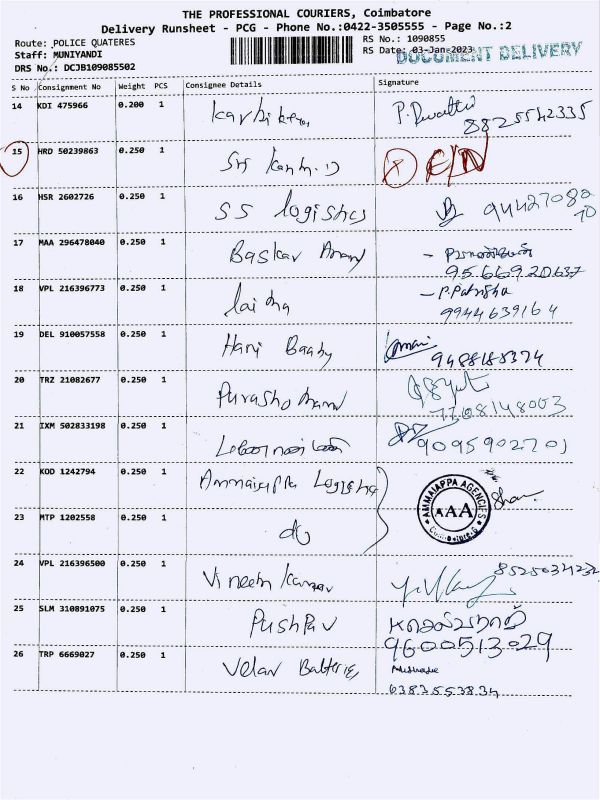 THE PROFESSIONAL COURIERS, Coimbatore
Delivery Runsheet - PCG - Phone No.:0422-3505555 - Page No.:2
Route: POLICE QUATERES
RS No.: 1090855
Staff: MUNIYANDI
RS Date: 03-Jan-2023
DOCUMENT DELIVERY
DRS No.: DCJB109085502
SR No Consignment No Weight PCS Consignee Details Signature
14 KDI 475966 0.200 1
8825542335
15 HRD 50239863 0.250 1 Sri
16 HSR 2602726 0.250 1 SS logistics 9442708070
17 MAA 296478040 0.250 1 Baskar Anand
9566920637
18 VPL 216396773 0.250 1
9944639164
19 DEL 910057558 0.250 1 Hari
9488185374
20 TRZ 21082677 0.250 1
7708148003
21 IXM 502833198 0.250 1
9095902701
22 KOD 1242794 0.250 1 Ammaiappa Logistics
AMMAIAPPA AGENCIES
AAA
Coimbatore-5
23 MTP 1202558 0.250 1 do
24 VPL 216396500 0.250 1 Vineeth Kumar 8525034232
25 SLM 310891075 0.250 1 Pushpav
9600513029
26 TRP 6669027 0.250 1 Velan Batteries
6383553834